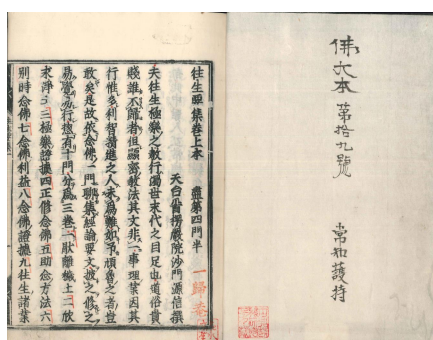 佛大本
第拾九號
常知護持
往生要集卷上本 盡第四門半
天台首楞嚴院沙門源信撰
夫往生極樂之教行濁世末代之目足也道俗貴
賤誰不歸者但顯密教法其文非一事理業因其
行惟多利智精進之人未爲難如予頑魯之者豈
敢矣是故依念佛一門聊集經論要文披之修之
易覺易行揔有十門分爲三卷一猒離穢土二欣
求淨土三極樂證據四正修念佛五助念方法六
別時念佛七念佛利益八念佛證據九往生諸業